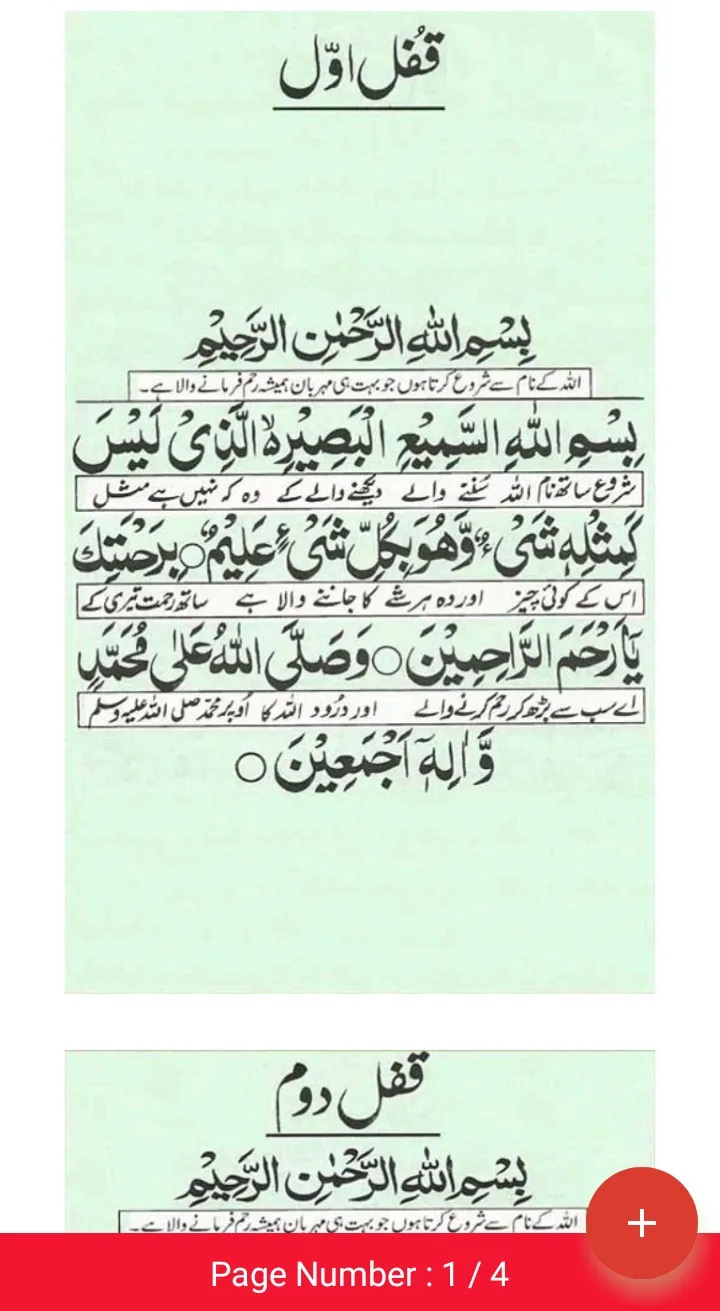 قُفل اوّل
بِسْمِ اللهِ الرَّحْمٰنِ الرَّحِيْمِ
اللہ کے نام سے شروع کرتا ہوں جو بہت ہی مہربان ہمیشہ رحم فرمانے والا ہے۔
بِسْمِ اللهِ السَّمِيْعِ الْبَصِيْرِ ہ الَّذِىْ لَيْسَ
شروع ساتھ نام اللہ سُننے والے دیکھنے والے کے وہ کہ نہیں ہے مثل
كَمِثْلِهٖ شَىْءٌ وَّهُوَ بِكُلِّ شَىْءٍ عَلِيْمٌ ○ بِرَحْمَتِكَ
اس کے کوئی چیز اور وہ ہر شے کا جاننے والا ہے ساتھ رحمت تیری کے
يَآاَرْحَمَ الرَّاحِمِيْنَ ○ وَصَلَّى اللهُ عَلٰى مُحَمَّدٍ
اے سب سے بڑھ کر رحم کرنے والے اور درُود اللہ کا اُوپر محمّد صلی اللہ علیہ وسلم
وَّاٰلِهٖٓ اَجْمَعِيْنَ ○
قفل دوم
بِسْمِ اللهِ الرَّحْمٰنِ الرَّحِيْمِ
اللہ کے نام سے شروع کرتا ہوں جو بہت ہی مہربان ہمیشہ رحم فرمانے والا ہے۔
+
Page Number : 1 / 4